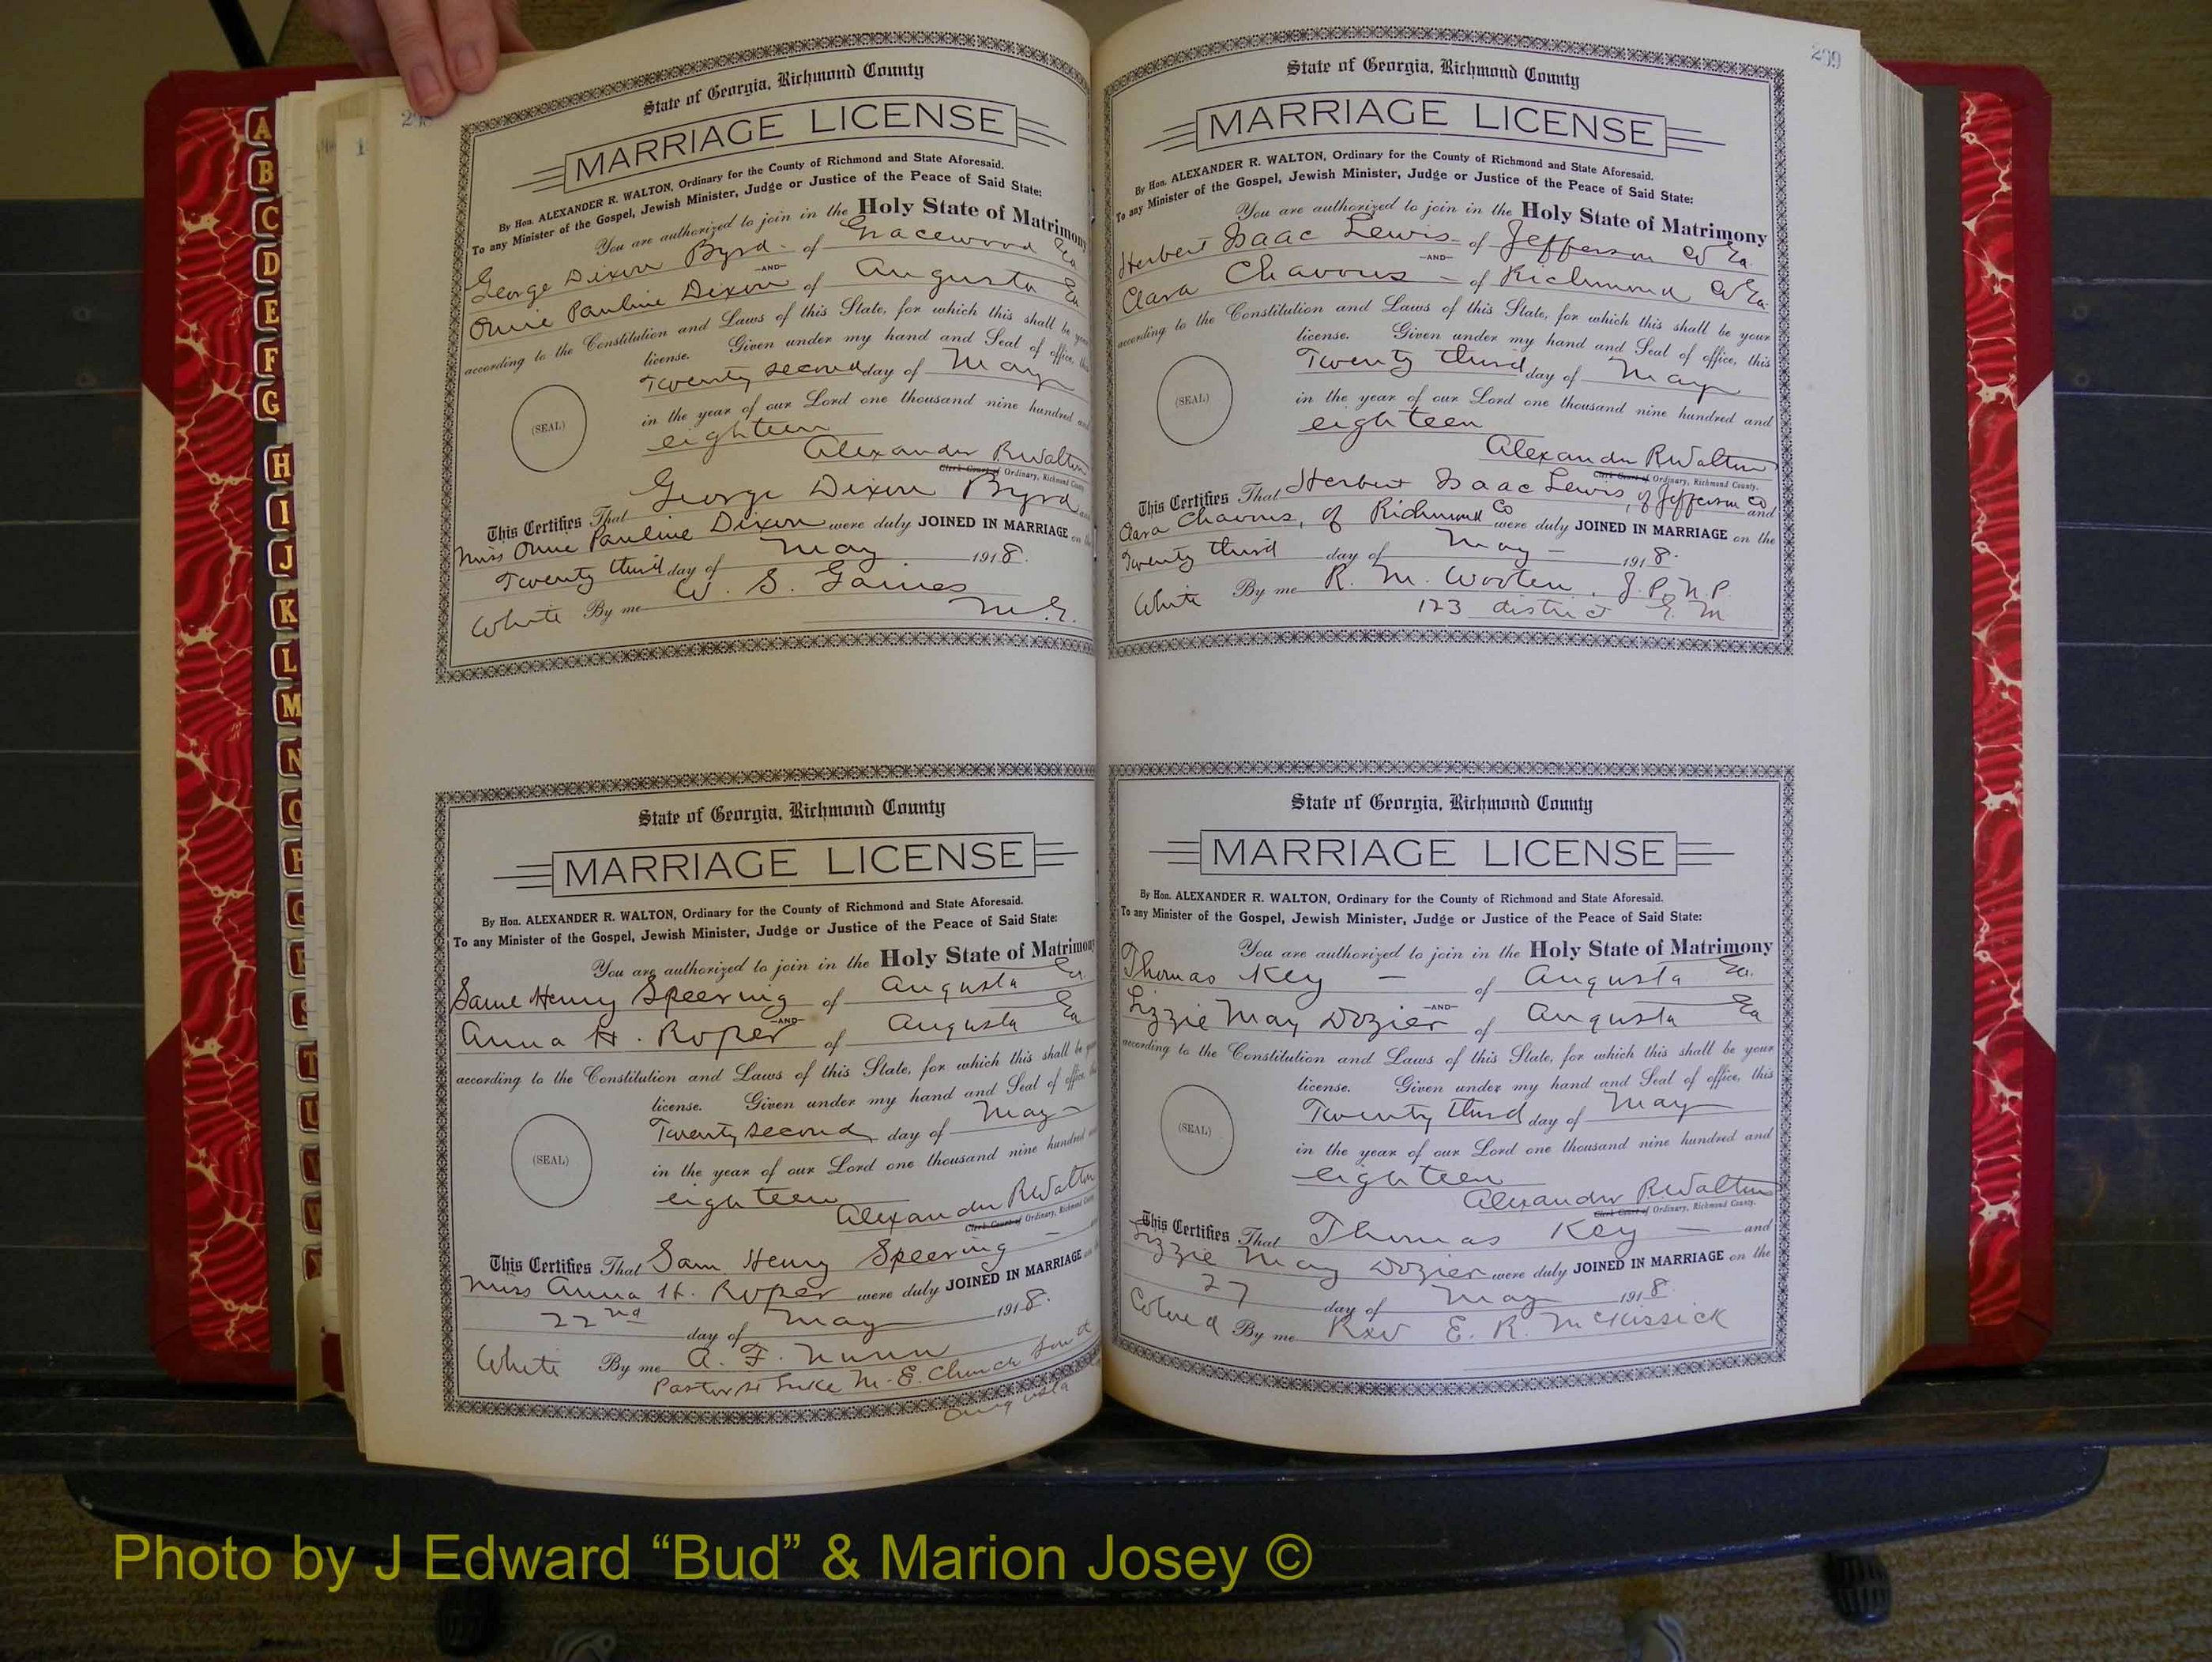 A
B
C
D
E
F
G
H
I
J
K
L
M
N
O
P
Q
R
S
T
U
V
W
State of Georgia, Richmond County
MARRIAGE LICENSE
By Hon. ALEXANDER R. WALTON, Ordinary for the County of Richmond and State Aforesaid.
To any Minister of the Gospel, Jewish Minister, Judge or Justice of the Peace of Said State:
You are authorized to join in the Holy State of Matrimony
George Dixon Byrd - of Gracewood Ga
—AND—
Omie Pauline Dixon of Augusta Ga
according to the Constitution and Laws of this State, for which this shall be your
license. Given under my hand and Seal of office, this
Twenty second day of May
(SEAL)
in the year of our Lord one thousand nine hundred and
eighteen
Alexander R Walton
Clerk Court of Ordinary, Richmond County
This Certifies That George Dixon Byrd and
Miss Omie Pauline Dixon were duly JOINED IN MARRIAGE on the
Twenty third day of May 1918.
White By me W. S. Gaines
M.G.
State of Georgia, Richmond County
MARRIAGE LICENSE
By Hon. ALEXANDER R. WALTON, Ordinary for the County of Richmond and State Aforesaid.
To any Minister of the Gospel, Jewish Minister, Judge or Justice of the Peace of Said State:
You are authorized to join in the Holy State of Matrimony
Same Henry Speering of Augusta Ga.
—AND—
Anna H. Roper of Augusta Ga
according to the Constitution and Laws of this State, for which this shall be your
license. Given under my hand and Seal of office, this
Twenty second day of May -
(SEAL)
in the year of our Lord one thousand nine hundred and
eighteen
Alexander R Walton
Clerk Court of Ordinary, Richmond County
This Certifies That Sam Henry Speering - and
Miss Anna H. Roper were duly JOINED IN MARRIAGE on the
22nd day of May 1918.
White By me A. F. Nunn
Pastor St Luke M. E. Church South
Augusta
299
State of Georgia, Richmond County
MARRIAGE LICENSE
By Hon. ALEXANDER R. WALTON, Ordinary for the County of Richmond and State Aforesaid.
To any Minister of the Gospel, Jewish Minister, Judge or Justice of the Peace of Said State:
You are authorized to join in the Holy State of Matrimony
Herbert Isaac Lewis - of Jefferson Co Ga.
—AND—
Clara Chavous - of Richmond Co Ga.
according to the Constitution and Laws of this State, for which this shall be your
license. Given under my hand and Seal of office, this
Twenty third day of May
(SEAL)
in the year of our Lord one thousand nine hundred and
eighteen
Alexander R Walton
Clerk Court of Ordinary, Richmond County.
This Certifies That Herbert Isaac Lewis, of Jefferson Co and
Clara Chavous, of Richmond Co were duly JOINED IN MARRIAGE on the
Twenty third day of May - 1918.
White By me R. M. Wooten, J. P. N. P.
123 district G. M
State of Georgia, Richmond County
MARRIAGE LICENSE
By Hon. ALEXANDER R. WALTON, Ordinary for the County of Richmond and State Aforesaid.
To any Minister of the Gospel, Jewish Minister, Judge or Justice of the Peace of Said State:
You are authorized to join in the Holy State of Matrimony
Thomas Key - of Augusta Ga.
—AND—
Lizzie May Dozier of Augusta Ga
according to the Constitution and Laws of this State, for which this shall be your
license. Given under my hand and Seal of office, this
Twenty third day of May
(SEAL)
in the year of our Lord one thousand nine hundred and
eighteen
Alexander R Walton
Clerk Court of Ordinary, Richmond County.
This Certifies That Thomas Key - and
Lizzie May Dozier were duly JOINED IN MARRIAGE on the
27 day of May 1918.
Colored By me Rev E. R. McKissick
Photo by J Edward “Bud” & Marion Josey ©